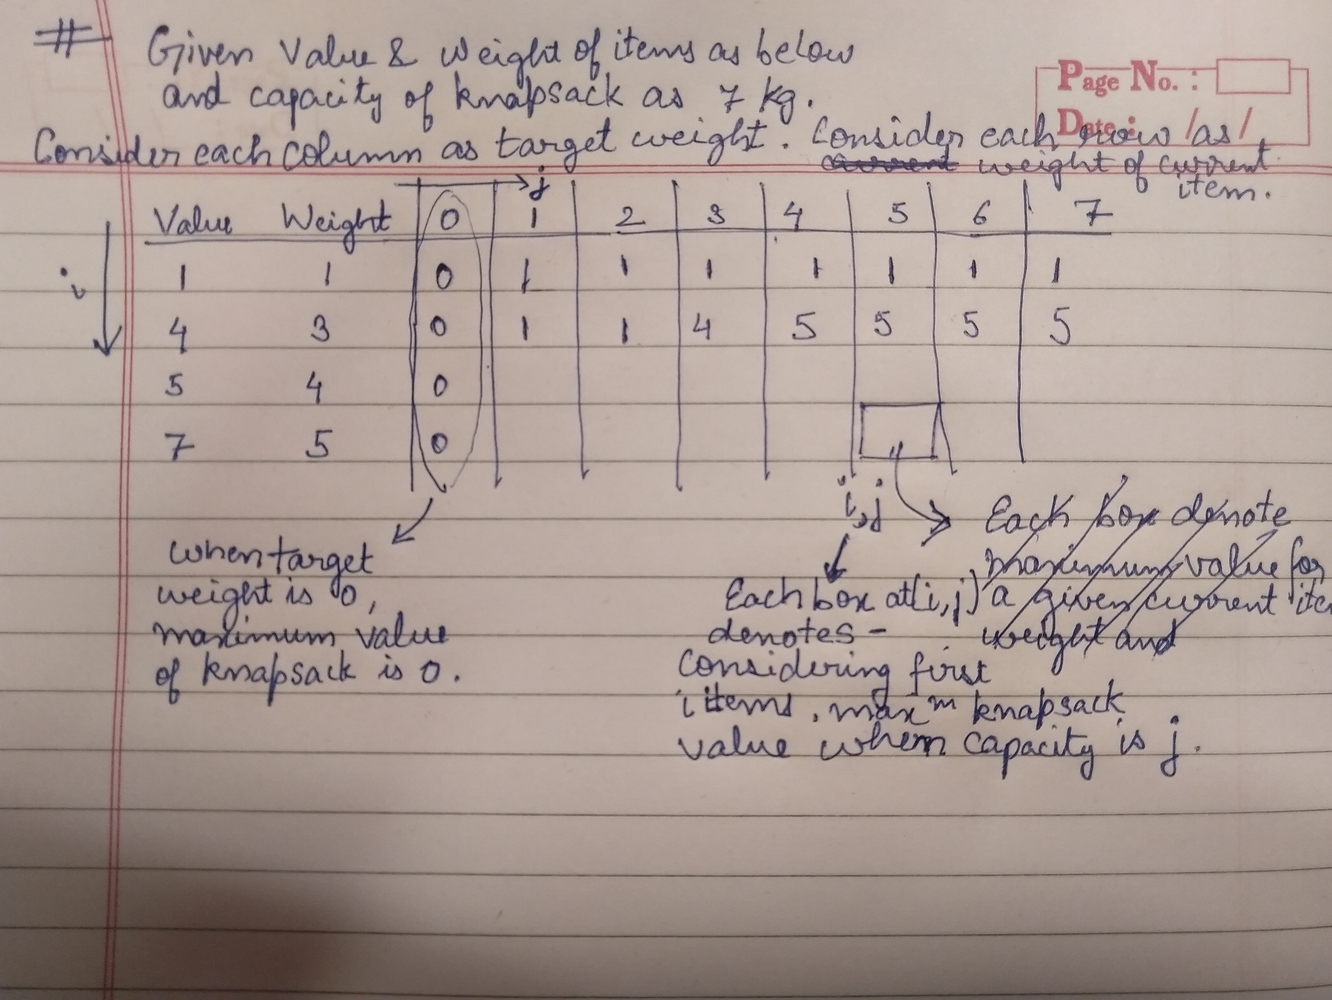 # Given Value & Weight of items as below
and capacity of knapsack as 7 kg.
Page No. :
Date : / /
Consider each column as target weight. Consider each row as
current weight of current
item.
j
Value Weight 0 1 2 3 4 5 6 7
i
1 1 0 1 1 1 1 1 1 1
4 3 0 1 1 4 5 5 5 5
5 4 0
7 5 0
i,j
when target
weight is 0,
maximum value
of knapsack is 0.
Each box denote
maximum value for
a given current item
weight and
Each box at (i,j)
denotes -
Considering first
i items, maxᵐ knapsack
value when capacity is j.